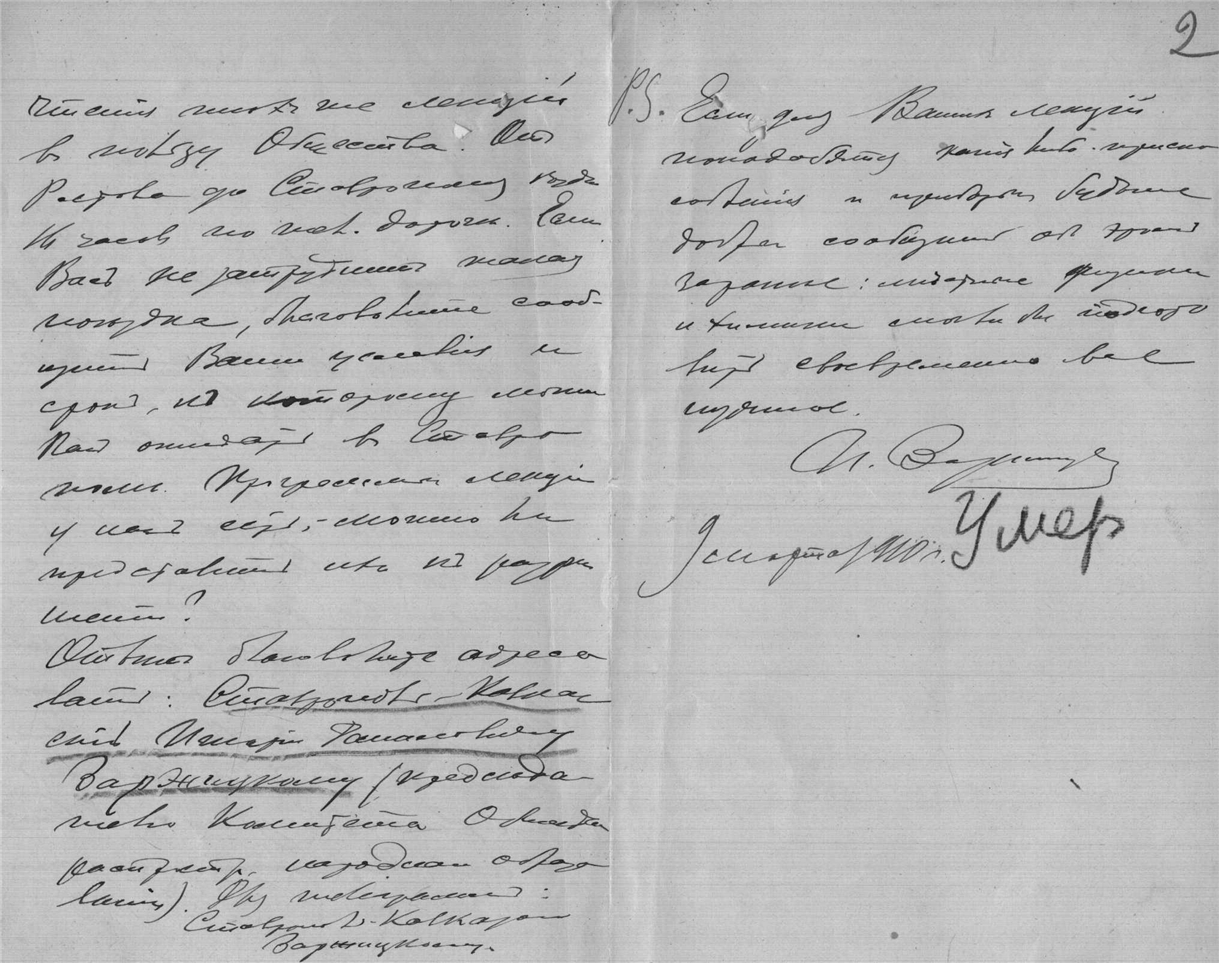 чтенія тѣхъ же лекцій
въ пользу Общества. Отъ
Ростова до Ставрополя ѣзды
часовъ по жел. дорогѣ. Если
Васъ не затруднитъ такая
поѣздка, благоволите сооб-
щить Ваши условія и
срокъ, къ которому можемъ
Васъ ожидать въ Ставро
полѣ. Программы лекцій
у насъ есть, – можно ли
представить ихъ къ разрѣ
шенію?
Отвѣтъ благоволите адресо
вать: Ставрополь-Кавказ
скій Игнатію
Варжицкому (предсѣда
телю Комитета Общества для
распростр. народнаго образо
ванія). Для телеграммъ:
Ставрополь-Кавказскій
Варжицкому.
2
P.S. Если для Вашихъ лекцій
понадобятся какія либо приспо
собленія и приборы, будьте
добры сообщить объ этомъ
заранѣе: мѣстные физики
и химики могли бы подгото
вить своевременно все
нужное.
И. Варжицкій
9 марта 1910 г.
Умер